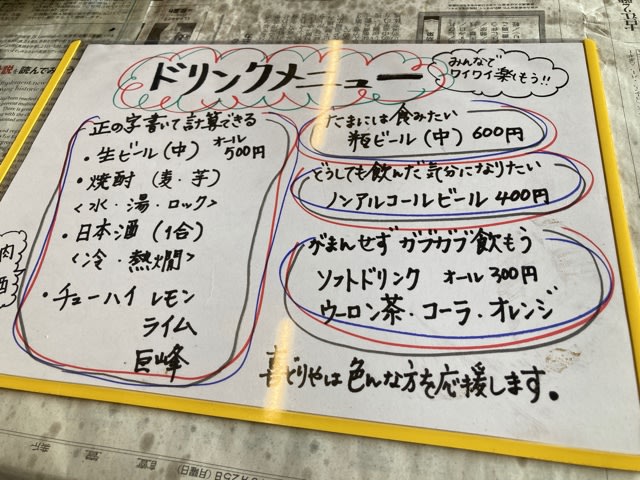 ドリンクメニュー
みんなで
ワイワイ楽しもう!!
正の字書いて計算できる
・生ビール(中) オール500円
・焼酎(麦・芋)
<水・湯・ロック>
・日本酒(1合)
<冷・熱燗>
・チューハイ レモン
ライム
巨峰
たまには飲みたい
瓶ビール(中) 600円
どうしても飲んだ気分になりたい
ノンアルコールビール 400円
がまんせず ガブガブ飲もう
ソフトドリンク オール300円
ウーロン茶・コーラ・オレンジ
喜どりやは色んな方を応援します。
肉
酒